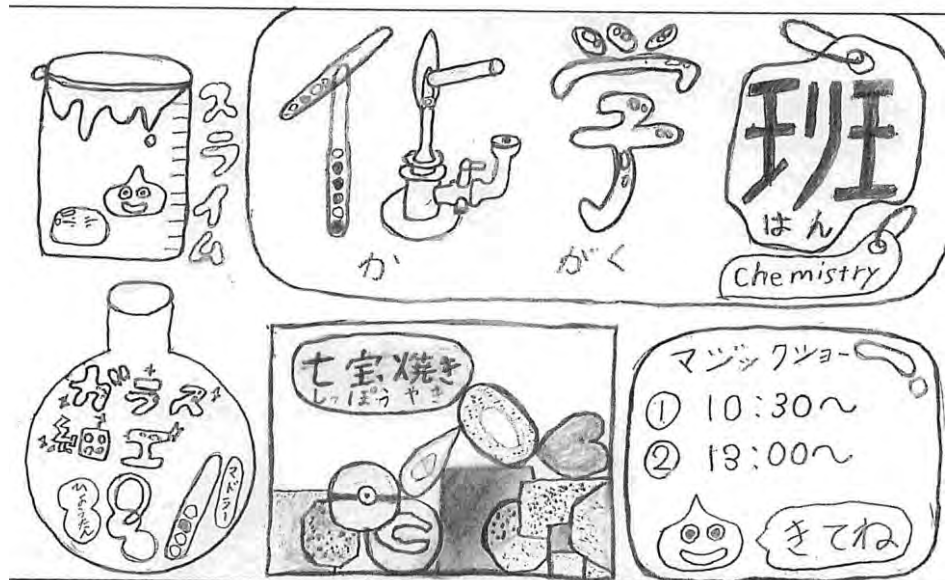 スライム
化学班
か がく はん
Chemistry
ガラス
細工
ひょうたん
マドラー
七宝焼き
しっぽうやき
マジックショー
① 10:30〜
② 13:00〜
きてね